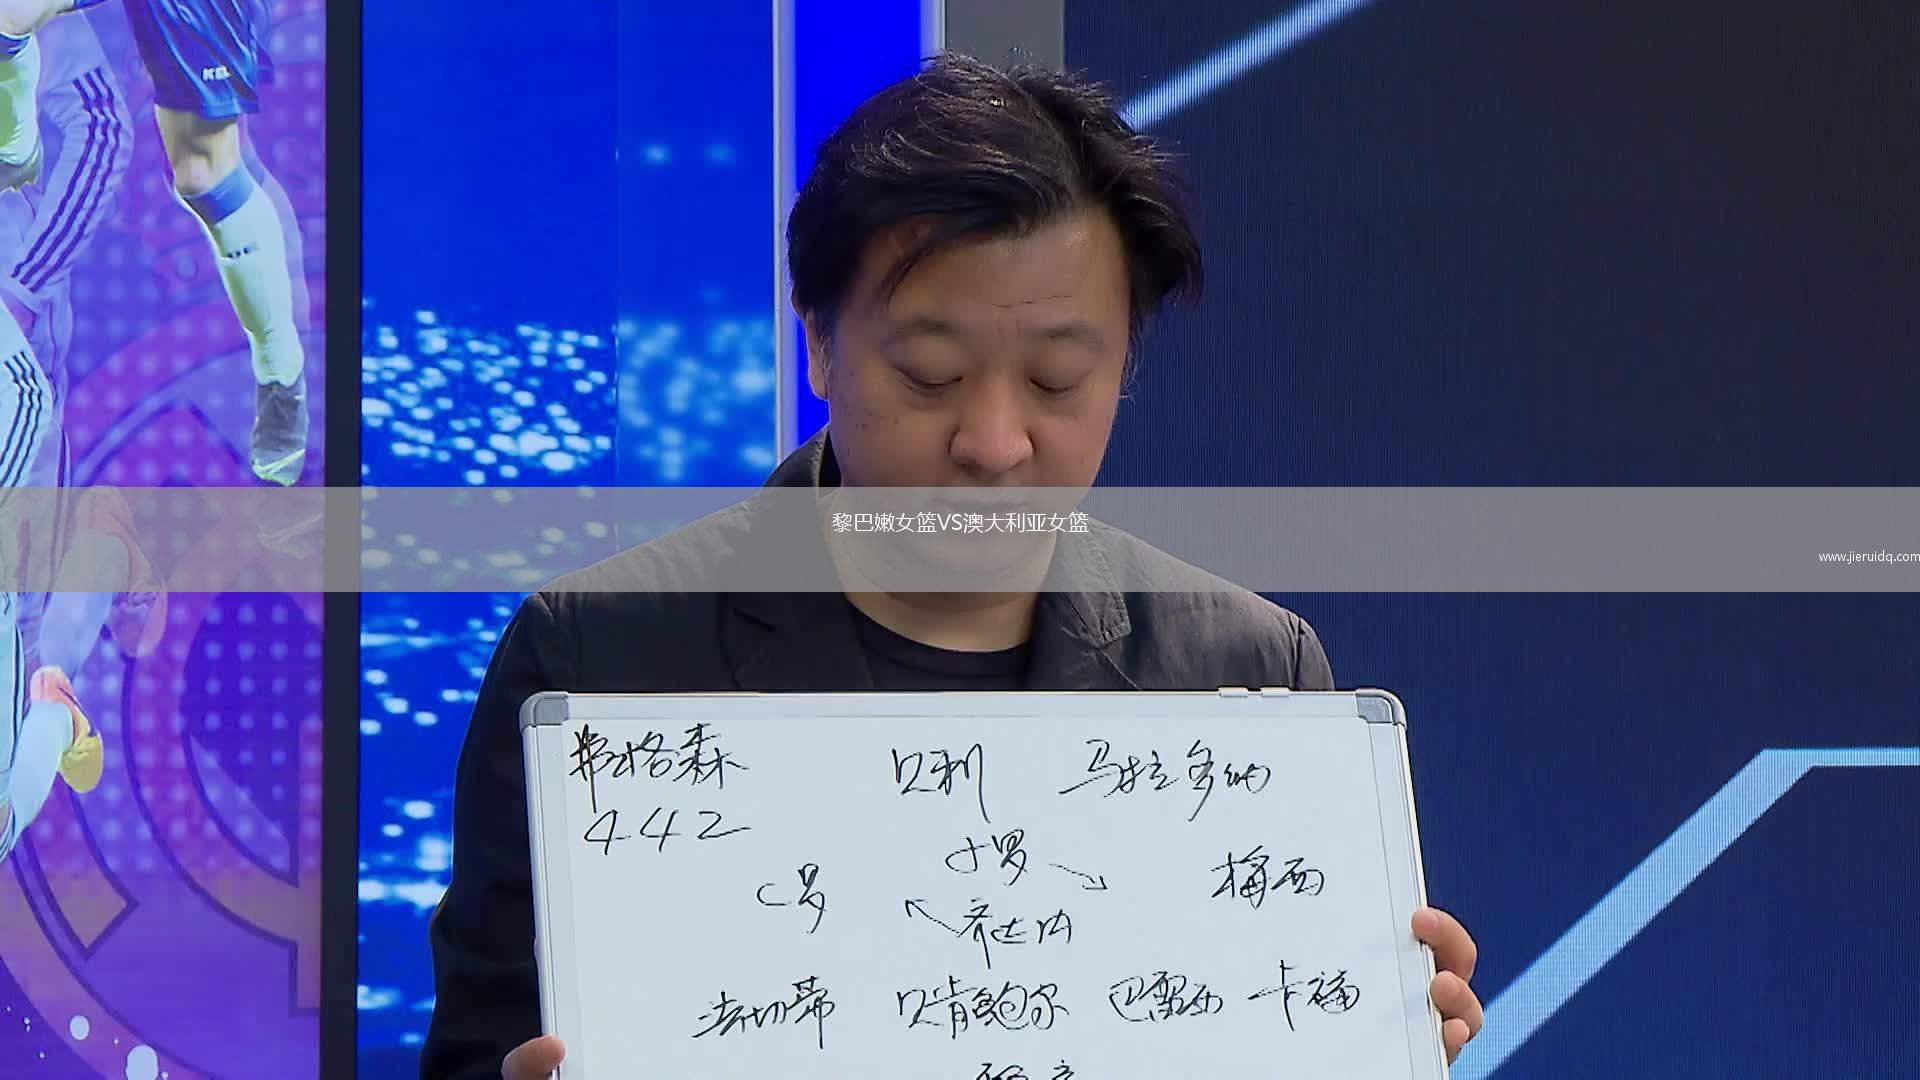 黎巴嫩女篮VS澳大利亚女篮
www.jieruidq.com
弗格森 贝利 马拉多纳
442
小罗
C罗 梅西
齐达内
法切蒂 贝肯鲍尔 巴雷西 卡福